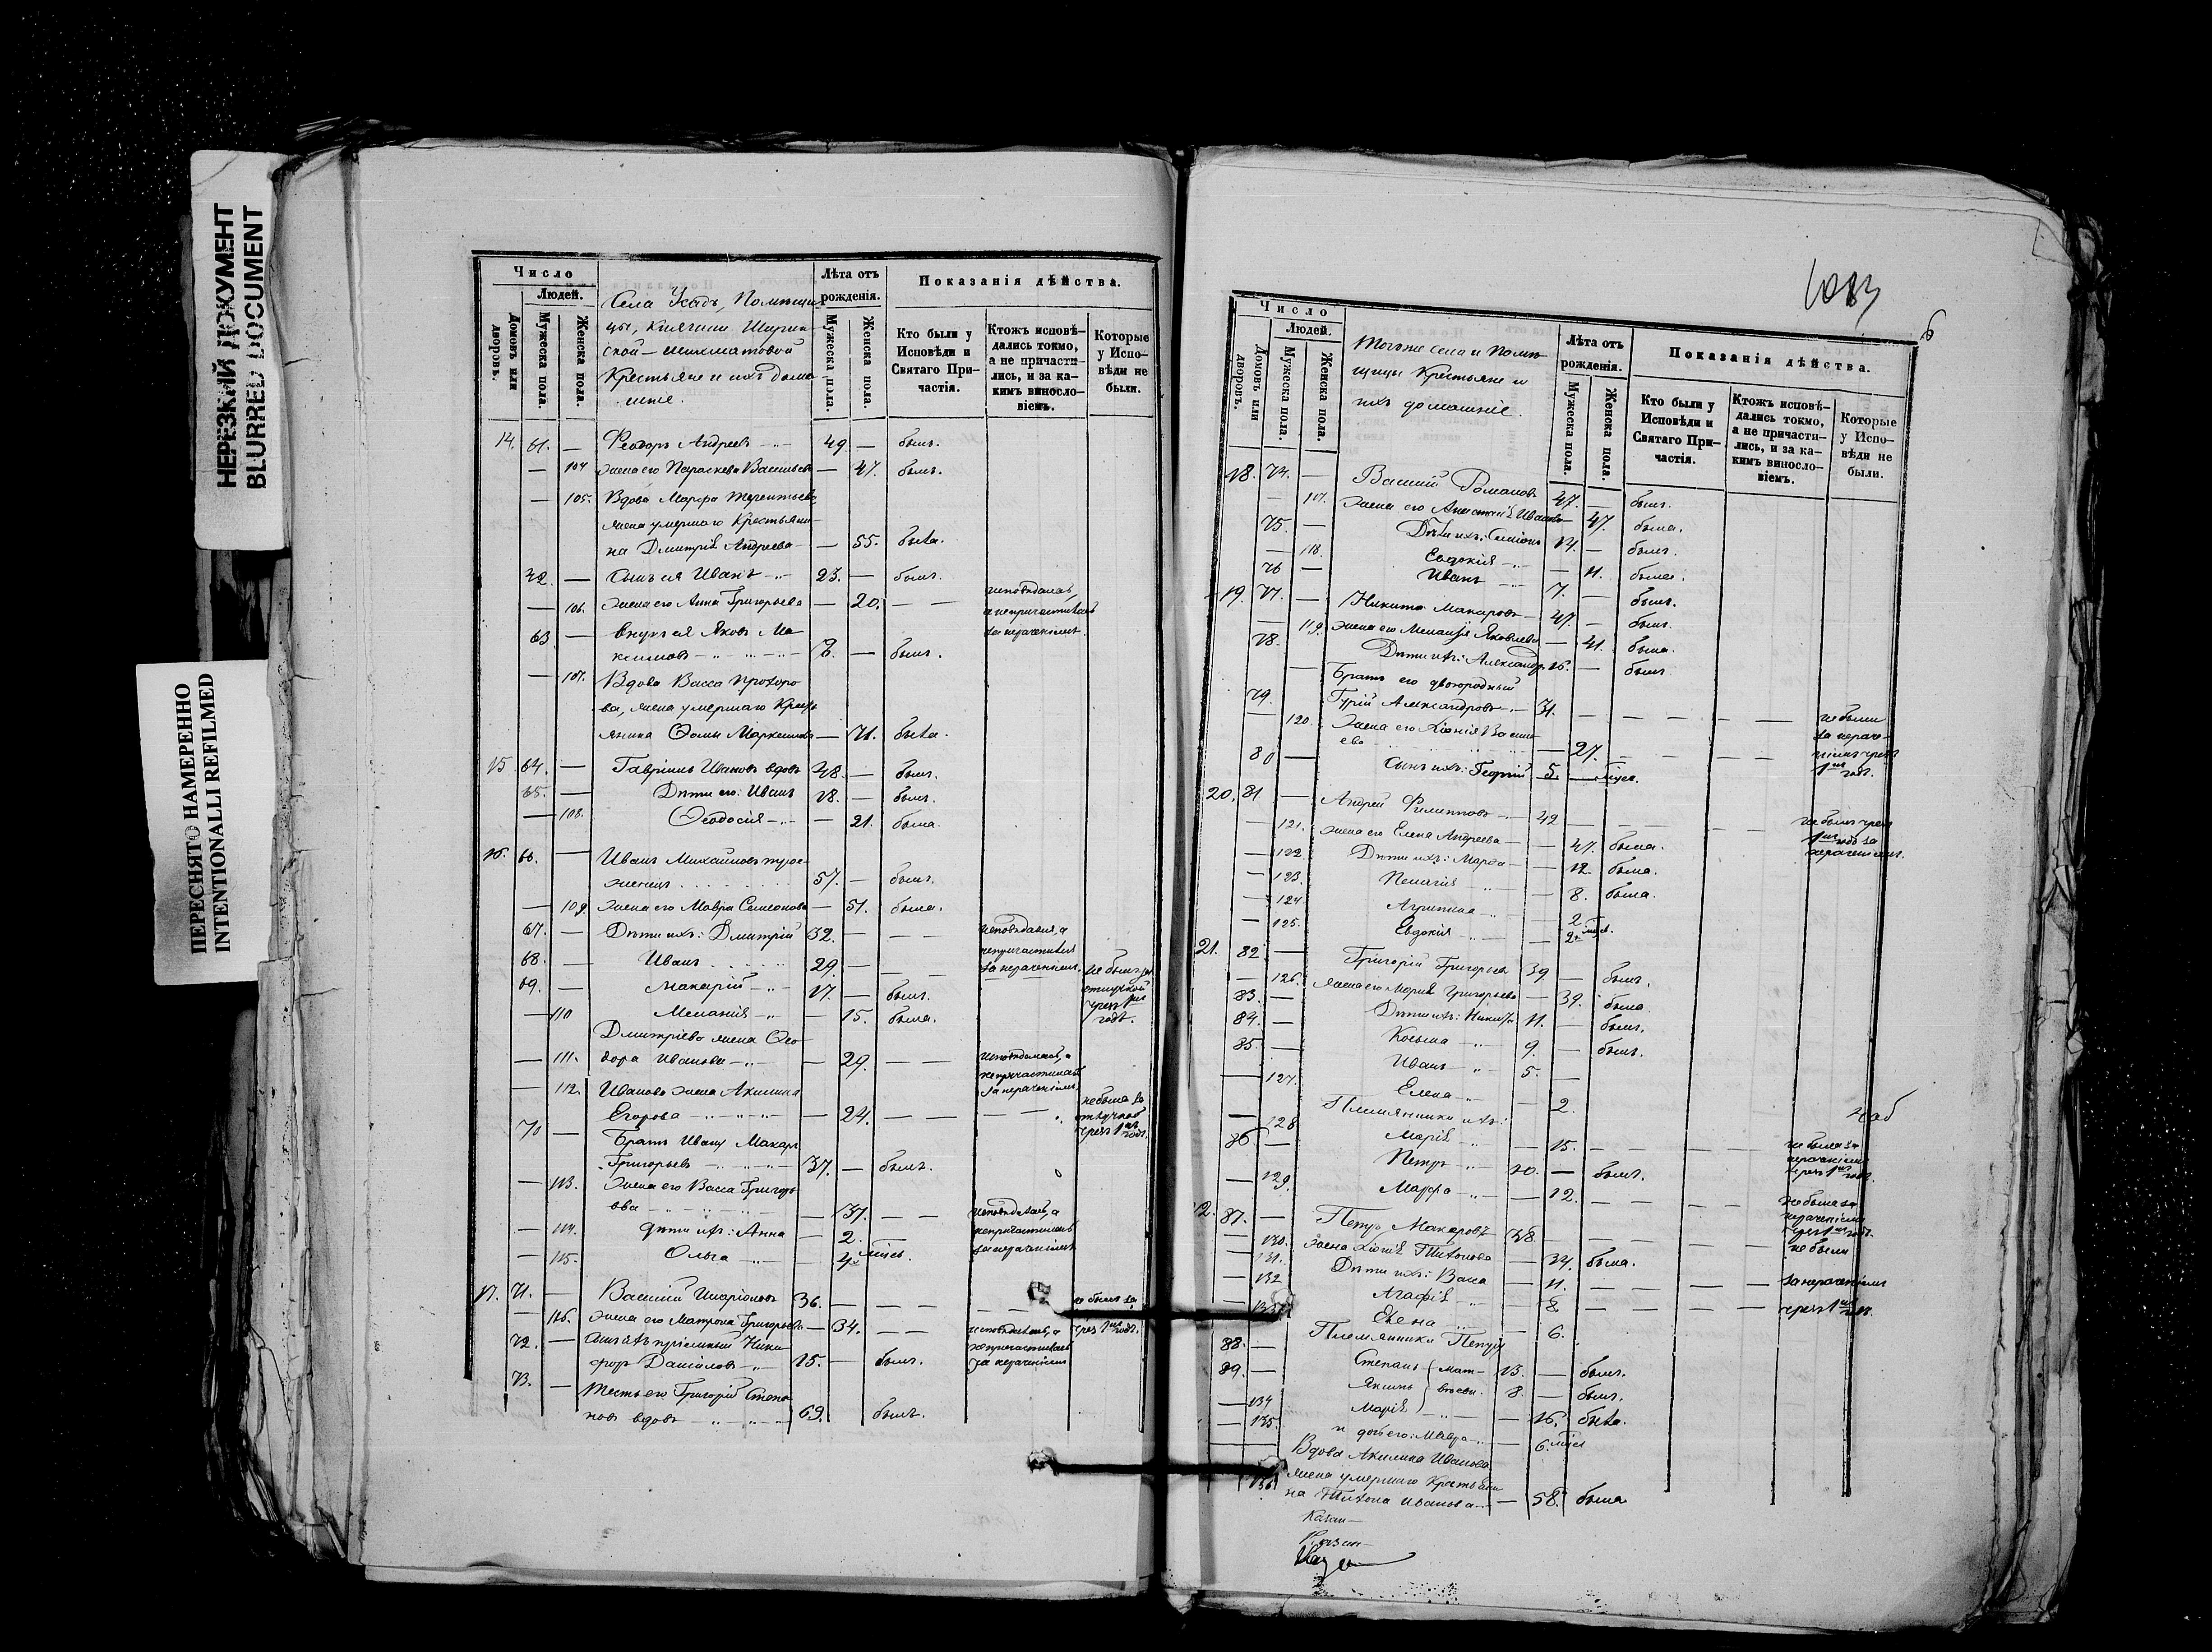 НЕРЕЗКИЙ ДОКУМЕНТ
BLURRED DOCUMENT
ПЕРЕСНЯТО НАМЕРЕННО
INTENTIONALLI REFILMED
Число
Людей.
Домовъ или дворовъ.
Мужеска пола.
Женска пола.
Села Усадъ, Помѣщи
цы, Княгини Ширин
ской-Шихматовой
Крестьяне и ихъ дома
шніе.
Лѣта отъ рожденія.
Мужеска пола.
Женска пола.
Показанія дѣйства.
Кто были у Исповѣди и Святаго При-частія.
Ктожъ исповѣ-дались токмо, а не причасти-лись, и за ка-кимъ винослo-віемъ.
Которые у Испо-вѣди не были.
14. 61. — Ѳеодоръ Андреевъ 49 — былъ.
— 104 жена его Параскева Васильева — 47. былъ.
— 105. Вдова Марфа Терентьева
жена умершаго Крестьяни-
на Дмитрія Андреева — 55. была.
— Сынъ ея Иванъ 23. — былъ.
— 106. жена его Анна Григорьева — 20. — — исповѣдалась,
а непричастилась
за нерачениемъ.
63 — Внукъ ея Яковъ Ма
ксимовъ — былъ.
— 107. Вдова Васса Прохоро
ва, жена умершаго Кресть
янина Ѳомы — 71. была.
15 64. — Гавріилъ Ивановъ вдовъ 48. — былъ.
65. — Дѣти его: Иванъ 18. — былъ.
— 108. Ѳеодосія — 21. была.
16. 66. — Иванъ Михайловъ
женецъ 57. — былъ.
— 109. жена его Мавра Семенова — 51. была.
67. — Дѣти ихъ: Дмитрій 32. — — — исповѣдался, а
непричастился
за нераченіемъ.
68. — Иванъ 29. — — — не былъ за
отлучкой
чрезъ 1ин
годъ.
69. — Макарій 17. — былъ.
— 110 Меланія — 15. была.
Дмитріева жена Ѳео
— 111. дора Иванова — 29. — — исповѣдалась, а
непричастилась
за нераченіемъ.
— 112. Иванова жена Акилина
Егорова — 24. — — — — не была за
отлучкой
чрезъ 1ин годъ.
70 — Братъ Ивану Макаръ
Григорьевъ 37. — былъ.
— 113. Жена его Васса Григорь
ева — 37. — — исповѣдалась, а
непричастилась
за нераченіемъ
— 114. дѣти ихъ: Анна — 2.
— 115. Ольга — мѣс.
17. 71. — Василій Иларіоновъ 36. — — — — не былъ за
чрезъ 1ин годъ.
— 116. жена его Матрона Григорьева — 34. — — исповѣдалась, а
непричастилась
за нераченіемъ
72. — пріемный Ники
форъ Даниловъ 15. — былъ.
73. — Тесть его Григорій Степа
новъ вдовъ 69. былъ.
1083
6
Число
Людей.
Домовъ или дворовъ.
Мужеска пола.
Женска пола.
Тогоже села и Помѣ
щицы Крестьяне и
ихъ домашніе.
Лѣта отъ рожденія.
Мужеска пола.
Женска пола.
Показанія дѣйства.
Кто были у Исповѣди и Святаго При-частія.
Ктожъ исповѣ-дались токмо, а не причасти-лись, и за ка-кимъ винослo-віемъ.
Которые у Испо-вѣди не были.
18. 74. — Василій Романовъ 47. — былъ.
— 117. жена его Анастасія Иванова — 47. была.
75. — Дѣти ихъ: Симеонъ 14. — былъ.
— 118. Евдокія — 11. была.
76 — Иванъ 7. — былъ.
19. 77. — Никита Макаровъ 47. — былъ.
— 119. жена его Меланія Яковлева — 41. была.
78. Дѣти ихъ: Александръ 16. — былъ
— Братъ его двоюродный
79. Гурій Александровъ 31. — — — — — не были
за нераче-
ніемъ чрезъ
1ин годъ.
— 120. Жена его Хіонія Васил
ева — 27. — —
80 — Сынъ ихъ: Георгій 5. — мѣс.
20. 81 — Андрей Филипповъ 42 — — — — не былъ чрезъ
1ин годъ за
нераченіемъ.
— 121. жена его Елена Андреева — 47. была.
— 122. Дѣти ихъ: Марфа — 12. была.
— 123. Пелагія — 8. была.
— 124. Агрипина — 2.
— 125. Евдокія — мѣс.
21. 82 — Григорій Григорьевъ 39 — былъ.
— 126. жена его Марія Григорьева — 39. была
83. — Дѣти ихъ: Никита 11. — былъ.
84. — Косьма 9. — былъ.
85. — Иванъ 5. —
— 127. Елена — 2.
Племянники ихъ:
— 128 Марія — 15. — — — не была за
нераченіемъ
чрезъ 1ин годъ.
86 — Петръ 10. — былъ.
— 129. Марфа — 12. — — — не была за
нераченіемъ
чрезъ 1ин годъ.
87. — Петръ Макаровъ 38. — — — не были
— 130. Жена Хіонія Тихонова — 34. была.
— 131. Дѣти ихъ: Васса — 11. — — — за нераченіемъ
— 132 Агафія — 8 — — — — чрезъ 1ин годъ.
Елена — 6.
Племянники Петру
88. — Степанъ 13. — былъ.
89. — Якимъ 8. — былъ.
— 134 Марія — 16. была.
— 135. и дочь его: Мавра — 6. мѣся
Вдова Акилина Иванова
136 жена умершаго Крестьяни
на Тихона Иванова — 58. была